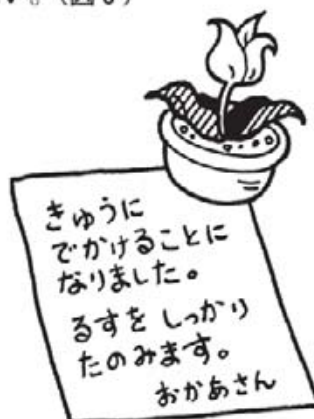 きゅうに
でかけることに
なりました。
るすを しっかり
たのみます。
おかあさん